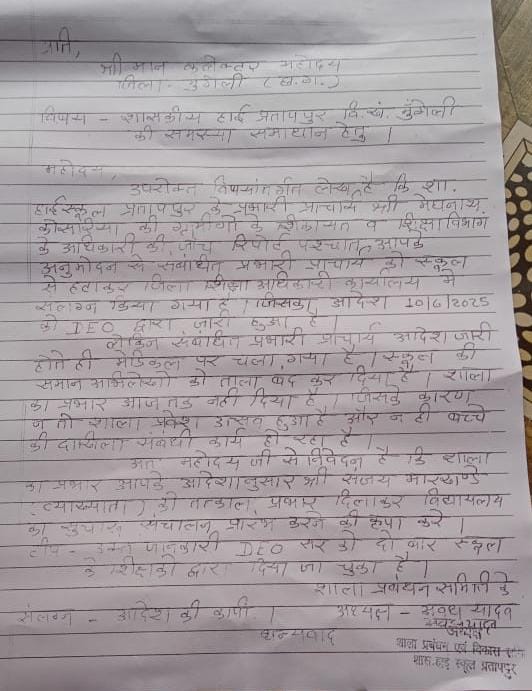 प्रति,
श्री मान कलेक्टर महोदय
जिला - मुंगेली (छ.ग.)
विषय - शासकीय हाई प्रतापपुर वि.खं. मुंगेली
की समस्या समाधान हेतु ।
महोदय,
उपरोक्त विषयांतर्गत लेख है कि शा.
हाईस्कूल प्रतापपुर के प्रभारी प्राचार्य श्री मेघनाथ
कोसरिया की ग्रामीणों के शिकायत व शिक्षा विभाग
के अधिकारी की जाँच रिपोर्ट पश्चात आपके
अनुमोदन से संबंधित प्रभारी प्राचार्य को स्कूल
से हटाकर जिला शिक्षा अधिकारी कार्यालय में
संलग्न किया गया है । जिसका आदेश 10/6/2025
को DEO द्वारा जारी हुआ है ।
लेकिन संबंधित प्रभारी प्राचार्य आदेश जारी
होते ही मेडिकल पर चला गया है । स्कूल की
समान अभिलेखों को ताला बंद कर दिया है । शाला
का प्रभार आज तक नहीं दिया है । जिसके कारण
न तो शाला प्रवेश उत्सव हुआ है और न ही बच्चे
की दाखिला संबंधी कार्य हो रहा है ।
अतः महोदय जी से निवेदन है कि शाला
का प्रभार आपके आदेशानुसार श्री संजय भारद्वाज
(व्याख्याता) को तत्काल प्रभार दिलाकर विद्यालय
का सुचारू संचालन प्रारंभ करने की कृपा करें ।
टीप - उक्त जानकारी DEO सर को दो बार स्कूल
के शिक्षकों द्वारा दिया जा चुका है ।
शाला प्रबंधन समिति के
संलग्न - आदेश की कापी । अध्यक्ष - अवध यादव
धन्यवाद
अध्यक्ष
शाला प्रबंधन एवं विकास
शास. हाई स्कूल प्रतापपुर